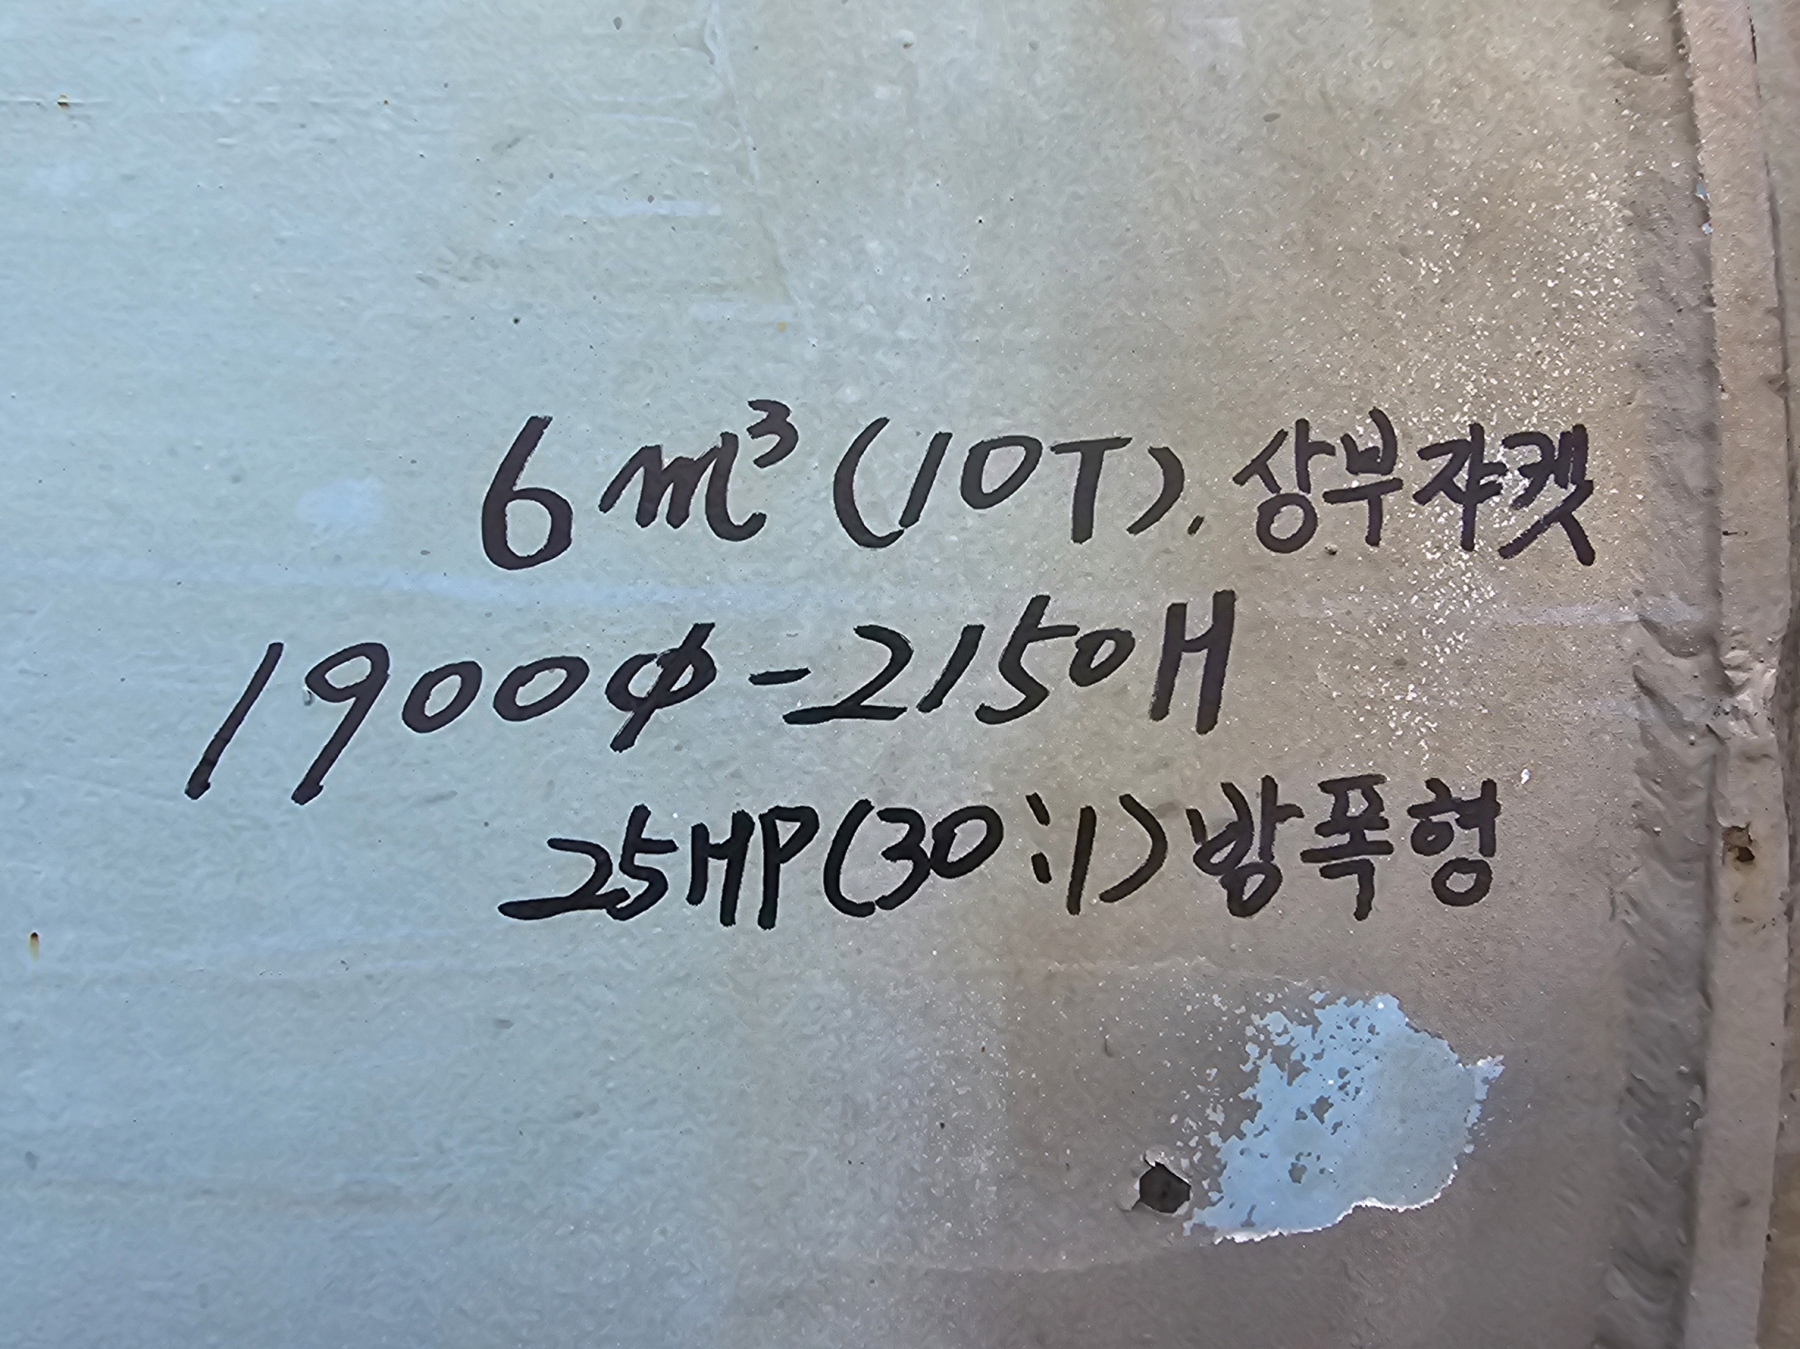 6m³(10T). 상부쟈켓
1900φ-2150H
25HP(30:1)방폭형